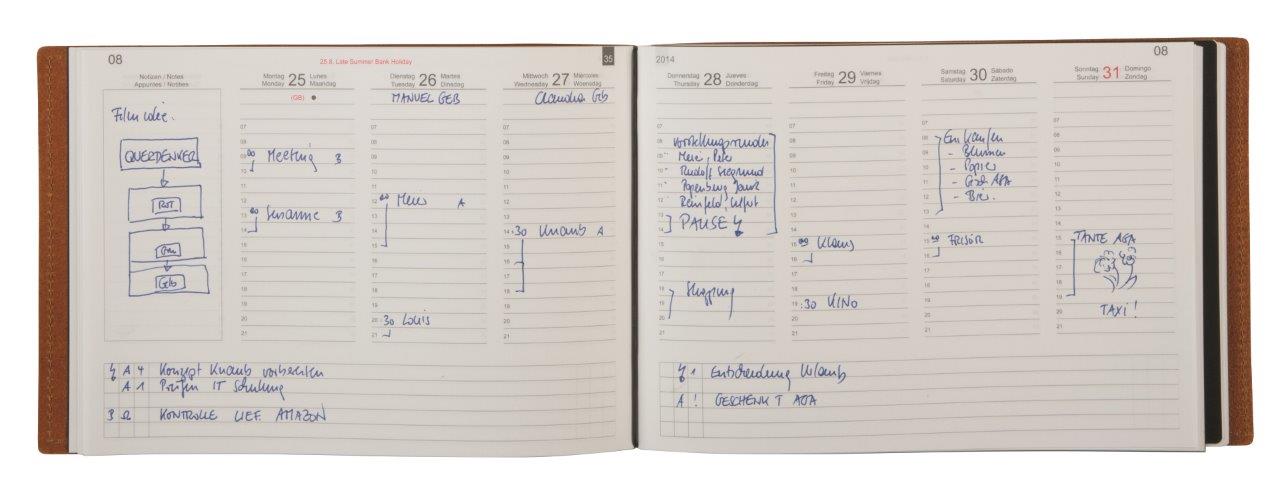 08
25.8. Late Summer Bank Holiday
35
Notizen / Notes
Appuntes / Notities
Montag 25 Lunes
Monday Maandag
(GB)
Dienstag 26 Martes
Tuesday Dinsdag
MANUEL GEB
Mittwoch 27 Miércoles
Wednesday Woensdag
Claudia Geb
Filmidee:
QUERDENKER
ROT
Geb
07
08
09 00 Meeting B
10
11
12
13 00 Susanne B
14
15
16
17
18
19
20
21
07
08
09
10
11
12 00 Meier A
13
14
15
16
17
18
19
20 :30 Louis
21
07
08
09
10
11
12
13
14 :30 Knaub A
15
16
17
18
19
20
21
A 4 Konzept Knaub vorbereiten
A 1 Prüfen IT Schulung
B Ω KONTROLLE LIEF. AMAZON
2014
08
Donnerstag 28 Jueves
Thursday Donderdag
Freitag 29 Viernes
Friday Vrijdag
Samstag 30 Sábado
Saturday Zaterdag
Sonntag 31 Domingo
Sunday Zondag
07
08 Vorstellungsrunden
09 Meier, Peter
10 Rudolf Siegmund
11 Papenberg
12 Reinfeld,
13
14 PAUSE
15
16
17
18 Shopping
19
20
21
07
08
09
10
11
12
13
14
15 00 Klaus
16
17
18
19 :30 KINO
20
21
07
08 Einkaufen
09 - Blumen
10 - Papier
11 - AGA
12 - Bier.
13
14
15 00 FRISÖR
16
17
18
19
20
21
07
08
09
10
11
12
13
14
15 TANTE AGA
16
17
18
19
20 TAXI!
21
1 Entscheidung Urlaub
A ! GESCHENK T AGA